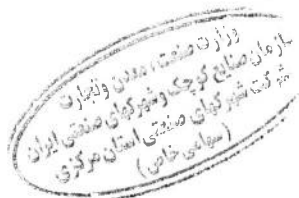 وزارت صنعت، معدن وتجارت
سازمان صنایع کوچک و شهرکهای صنعتی ایران
شرکت شهرکهای صنعتی استان مرکزی
(سهامی خاص)